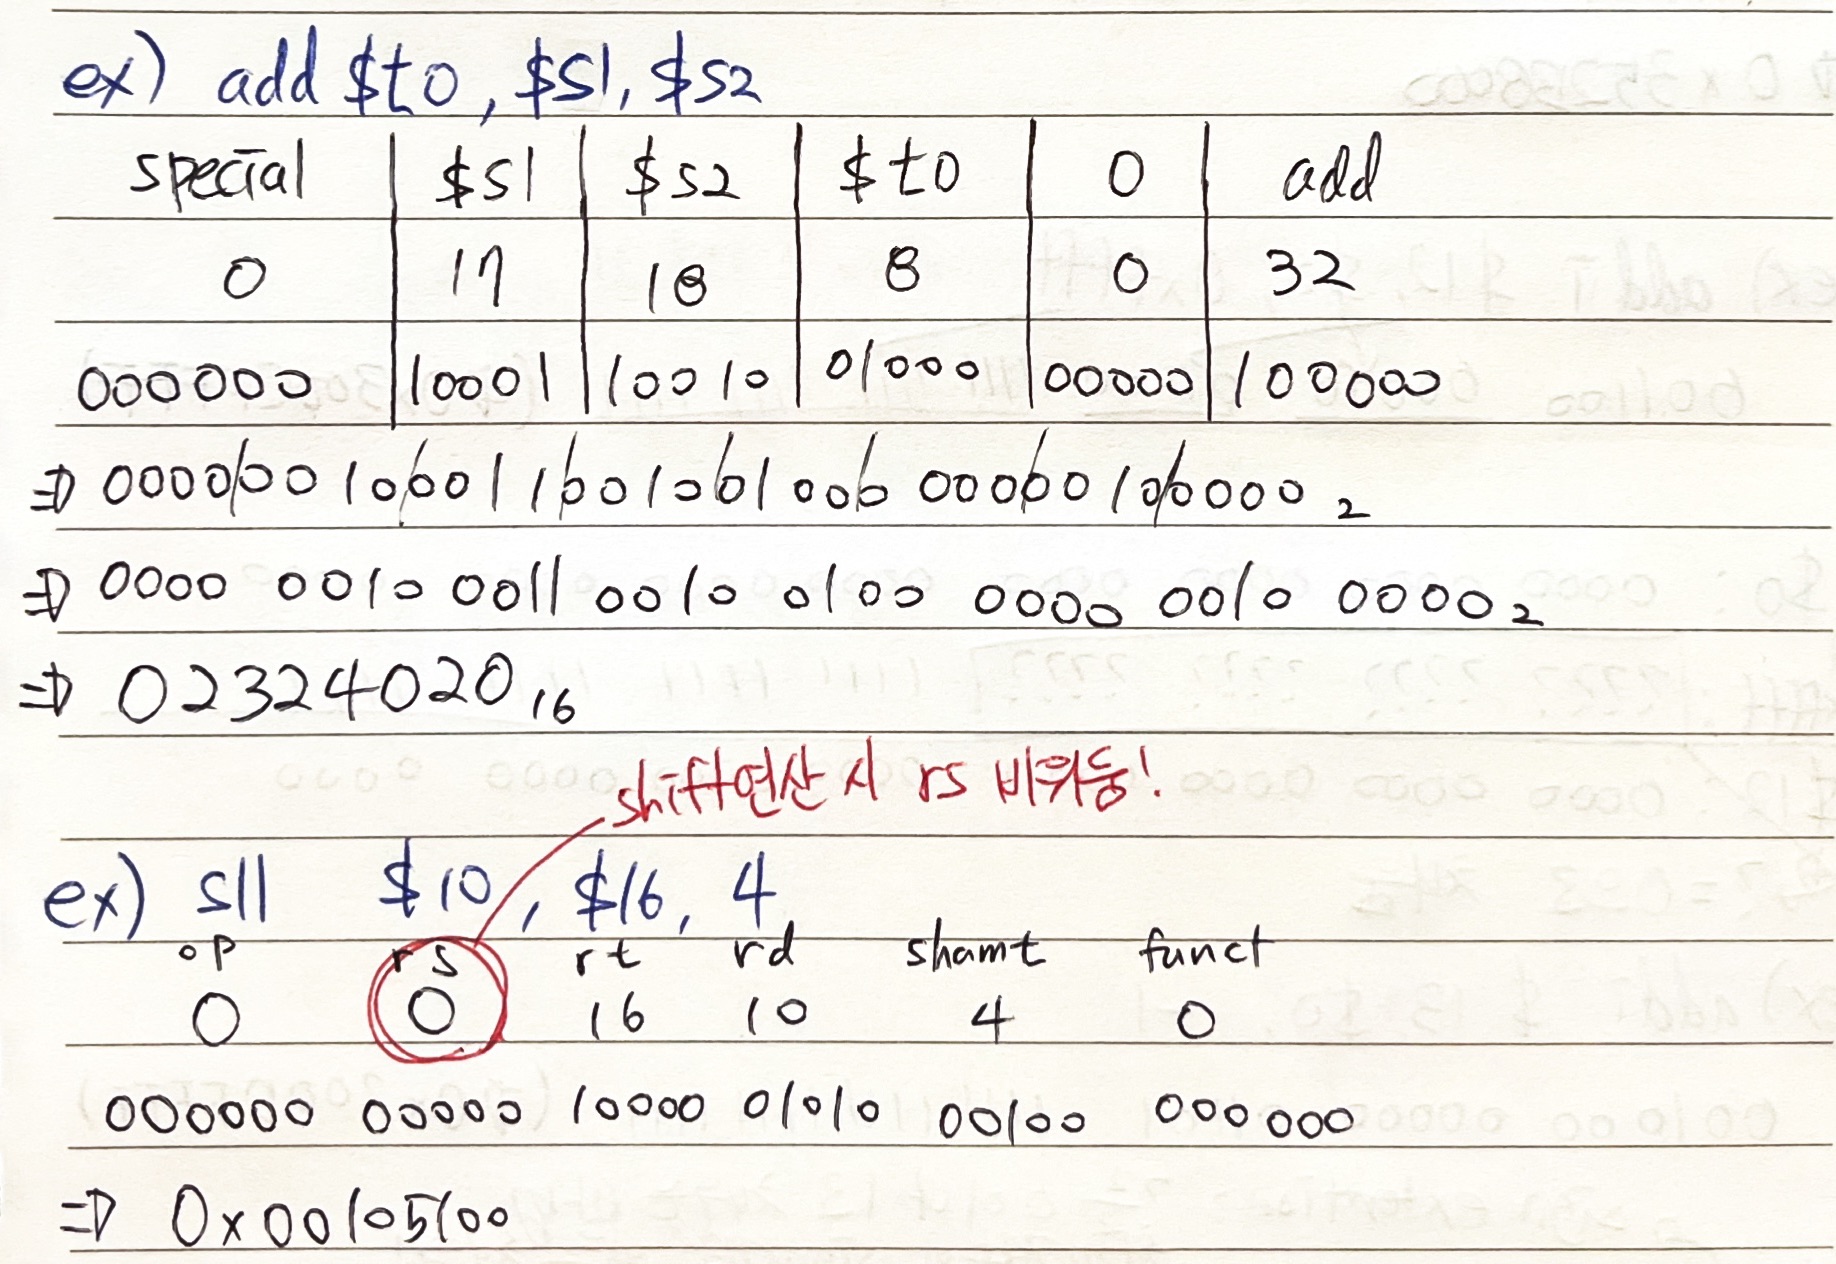 ex) add $t0, $s1, $s2
special $s1 $s2 $t0 0 add
0 17 18 8 0 32
000000 10001 10010 01000 00000 100000
⇒ 000000 10001 10010 01000 00000 100000 2
⇒ 0000 0010 0011 0010 0100 0000 0010 0000 2
⇒ 02324020 16
shift연산 시 rs 비워둠!
ex) sll $10, $16, 4
op rs rt rd shamt funct
0 0 16 10 4 0
000000 00000 10000 01010 00100 000000
⇒ 0x00105100